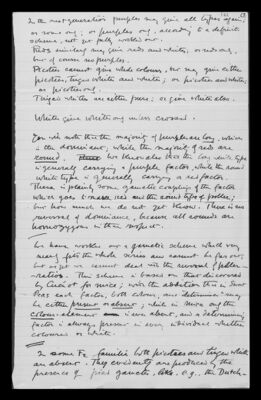 In the next generation purples may give all types again,
or some only; or purples only, according to a definite
scheme, not yet fully worked out.
Reds similarly may give reds and whites, or reds only,
but of course no purples.
Picotees cannot give whole colours, but may give either
picotees, tinged whites and whites; or picotees and whites,
or picotees only.
Tinged whites are either pure, or give whites also.
Whites give whites only unless crossed.
You will note that the majority of purples are long, which
is the dominant, while the majority of reds are
round. We therefore that the long white type
is generally carrying a purple factor, while the round
white type is generally carrying a red factor.
There is plainly some gametic coupling of the factor
which goes to make reds and the round type of pollen;
but how much we do not yet know. There is no
reversal of dominance, because all rounds are
homozygous in this respect.
We have worked out a gametic scheme which very
nearly fits the whole series as far as
but as yet we cannot deal with the reversal of
This scheme is based on that discovered
by Cuénot for mice; with the addition that in Sweet
Peas each factor, both colour, and determinant may
be either present or absent; while in mice the
colour-element is ever absent, and a determining
factor is always present in every individual whether
coloured or white.
In some F2 families both picotees and tinged whites
are absent. They evidently are produced by the
presence of gametic, e.g., the Dutch-